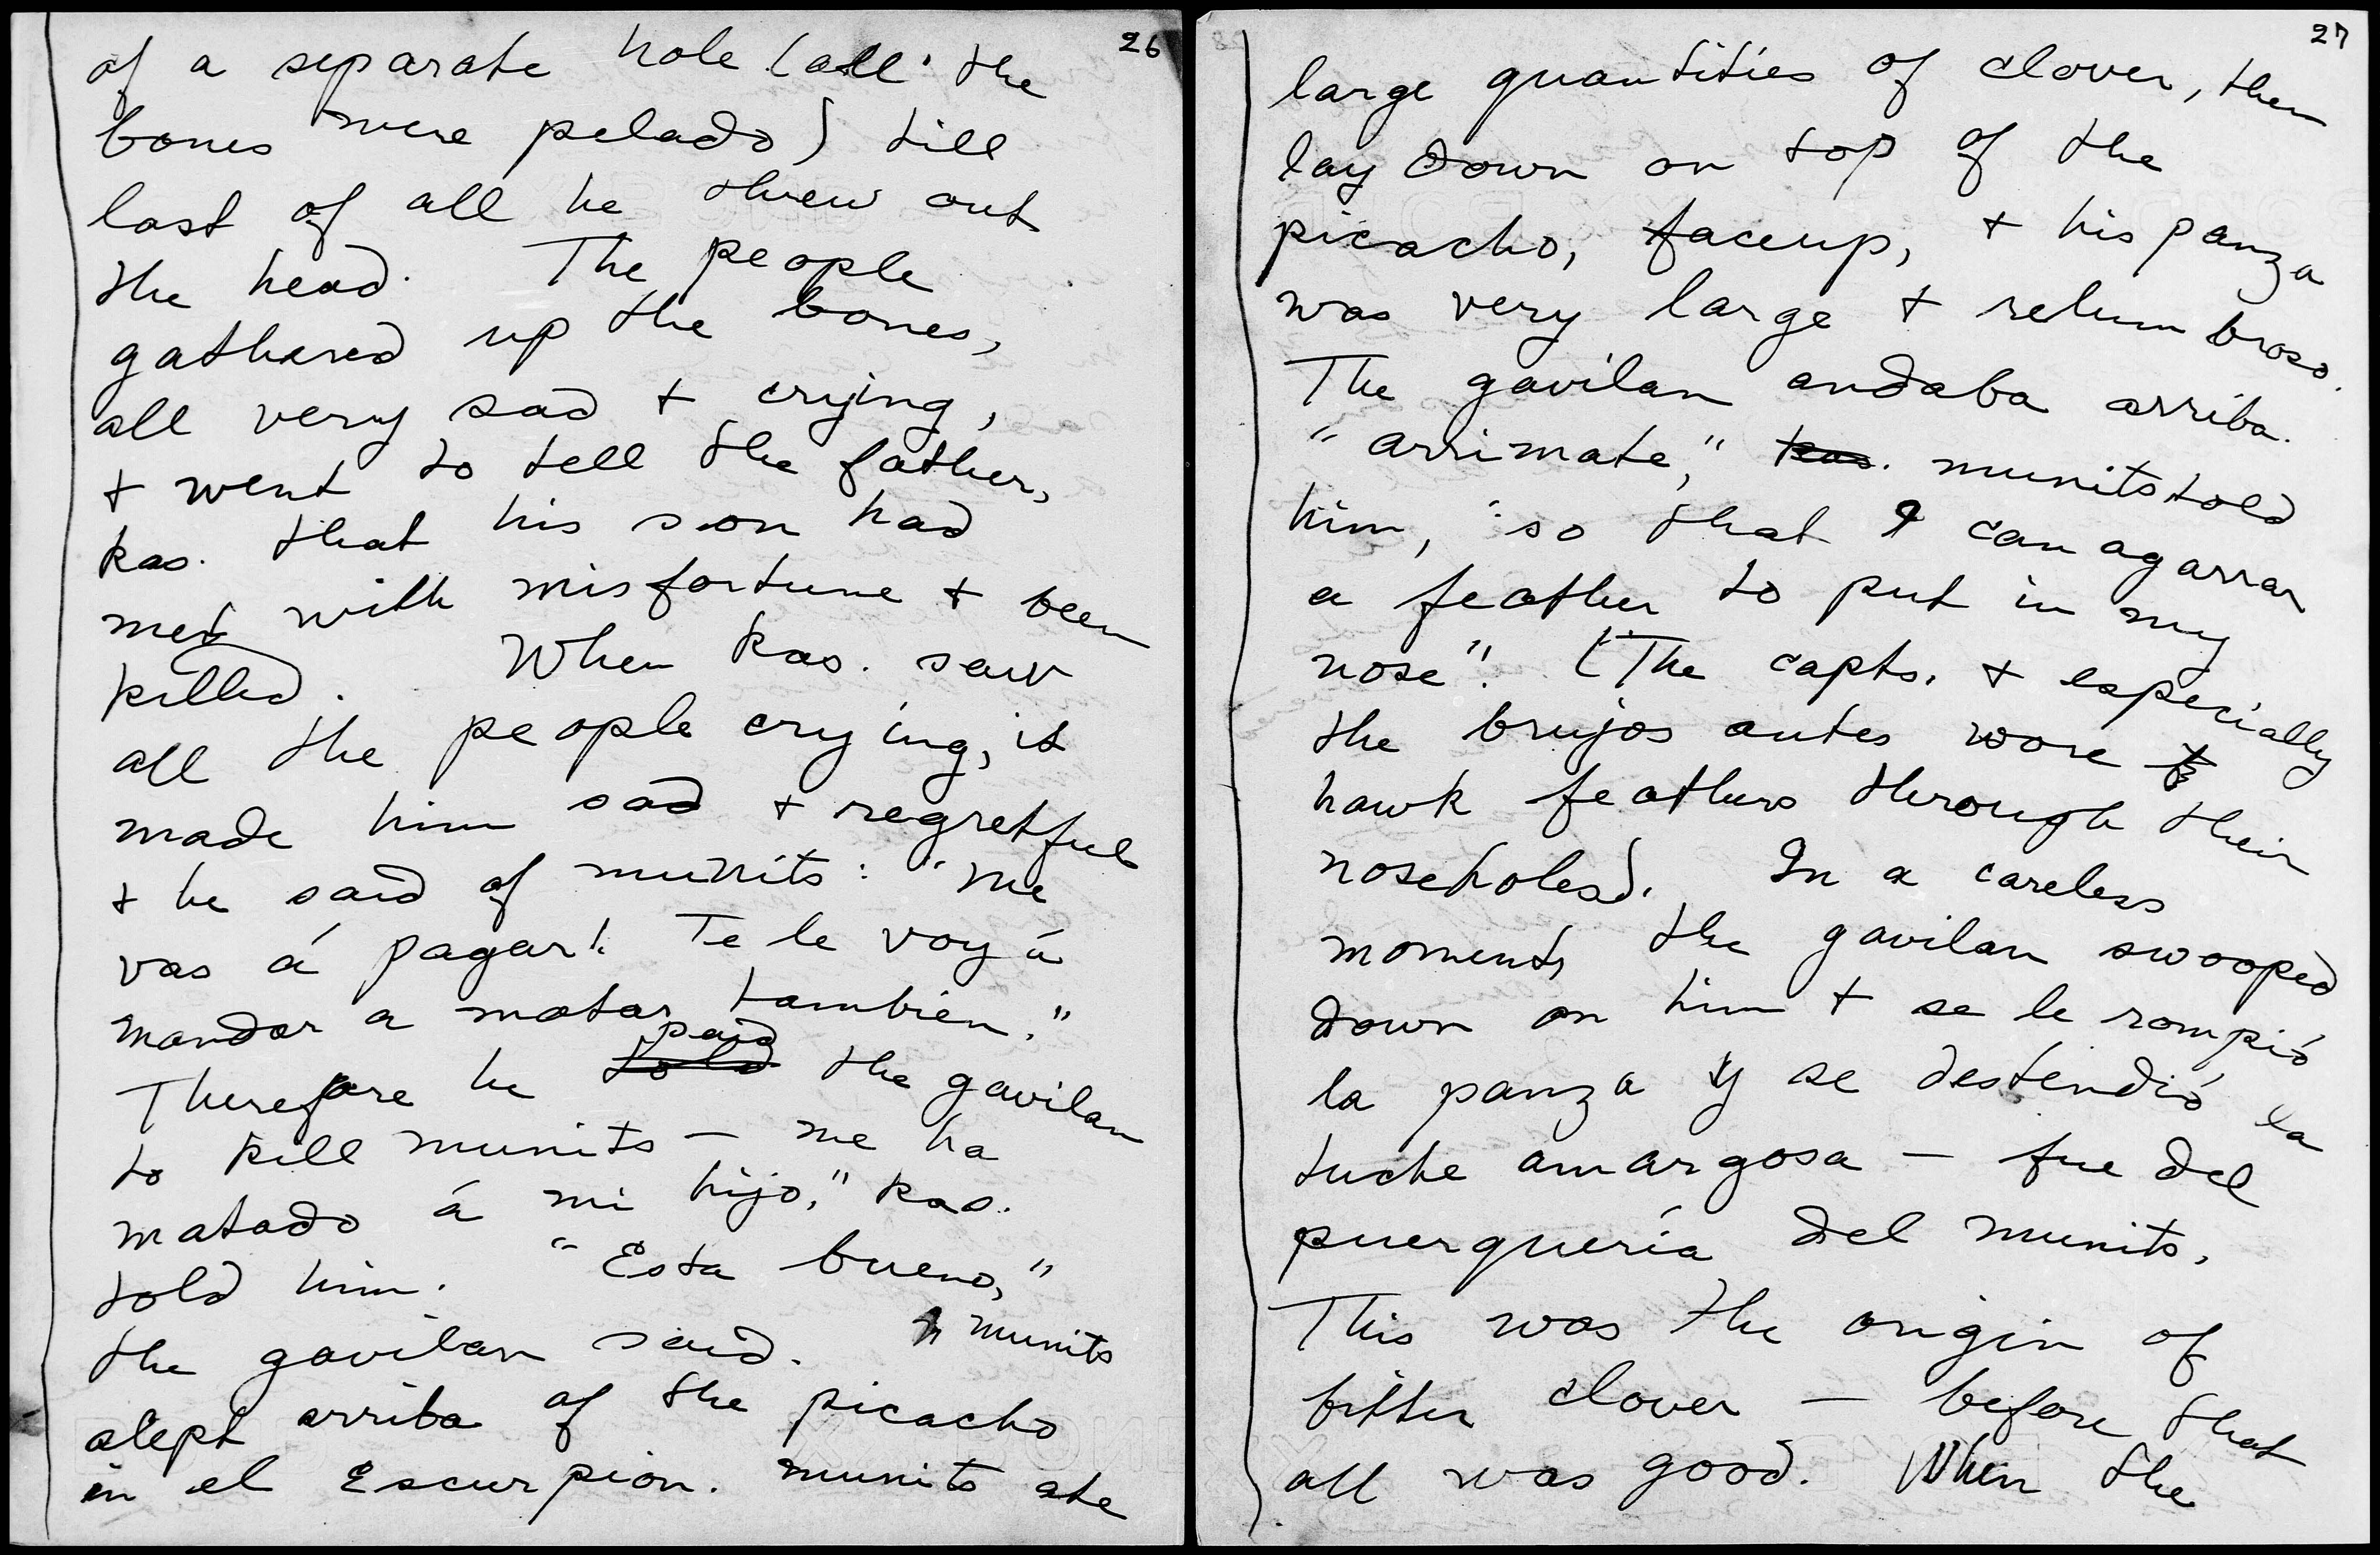 26
of a separate hole (all the
bones were pelado) till
last of all he threw out
the head. The people
gathered up the bones,
all very sad + crying,
+ went to tell the father,
kas. that his son had
met with misfortune + been
killed. When kas. saw
all the people crying, it
made him sad + regretful
+ he said of munits: "me
vas á pagar! Te le voy á
mandar a matar tambien."
Therefore he told paid the gavilan
to kill munits — me ha
matado á mi hijo," kas.
told him. "Esta bueno,"
the gavilan said. munits
slept arriba of the picacho
in el Escurpion. munits ate
27
large quantities of clover, then
lay down on top of the
picacho, faceup, + his panza
was very large + relumbroso.
The gavilan andaba arriba.
"arrimate," kas. munits told
him, "so that I can agarrar
a feather to put in my
nose". (The capts. + especially
the brujos antes wore
hawk feathers through their
noseholes). In a careless
moment, the gavilan swooped
down on him + se le rompió
la panza y se destendió la
tuche amargosa — fue del
puerquería del munits.
This was the origin of
bitter clover — before that
all was good. When the